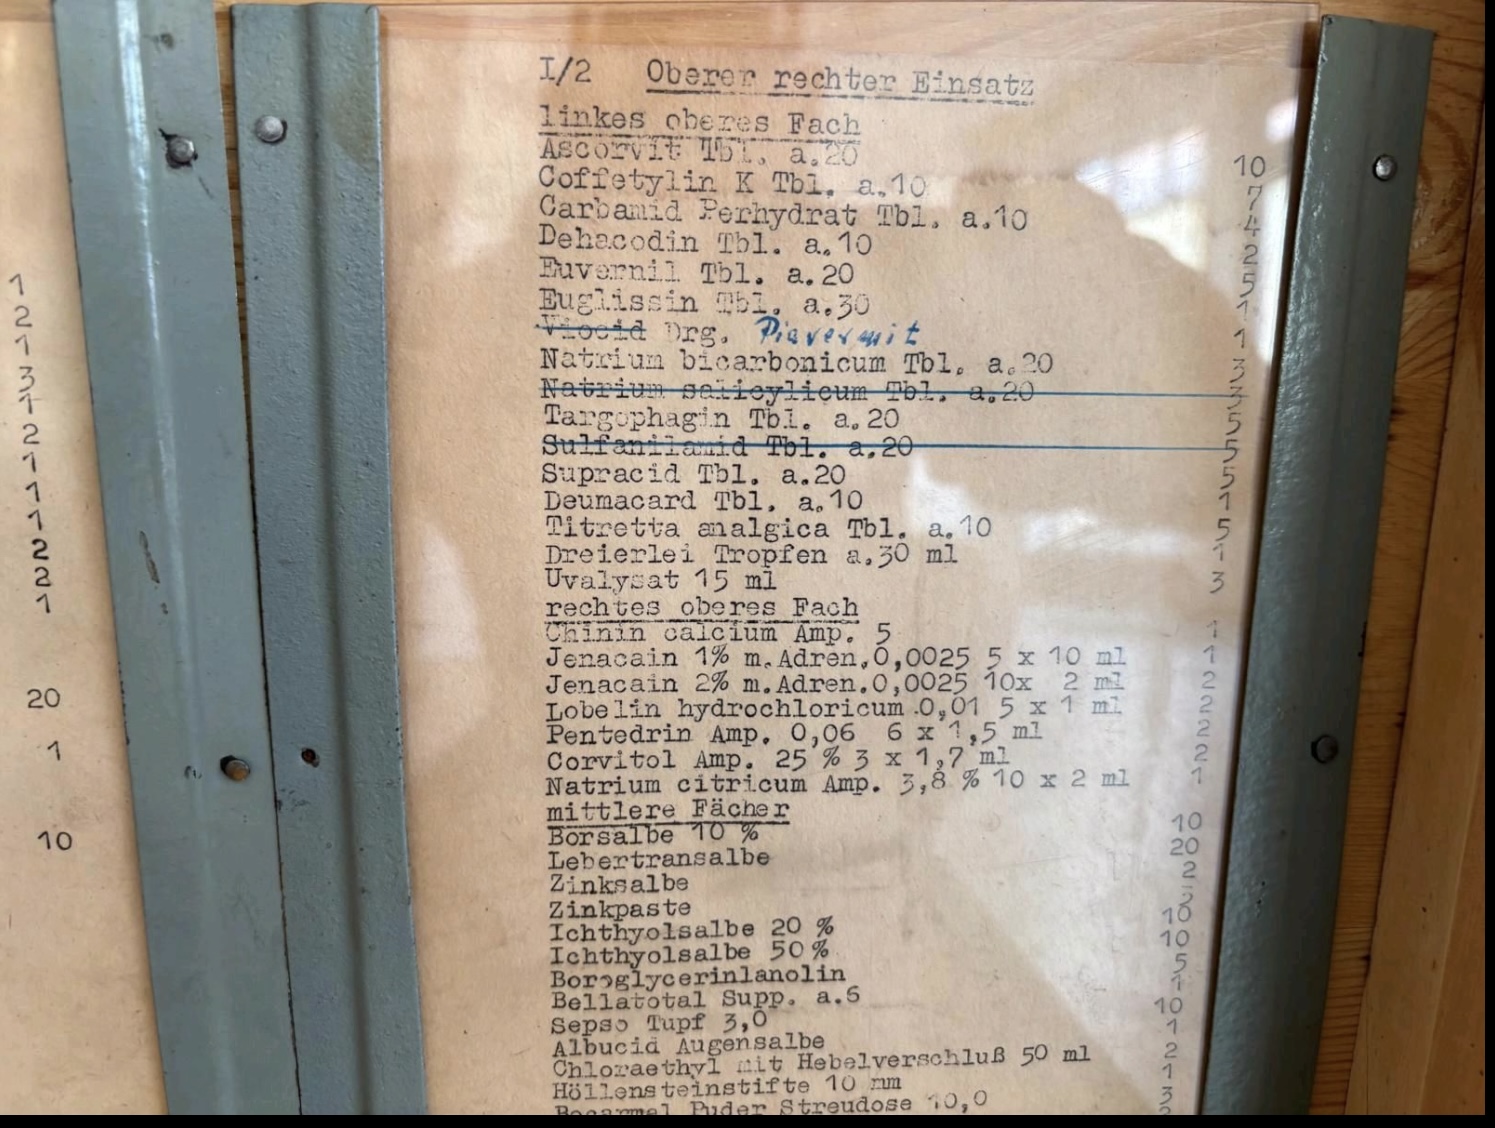 I/2 Oberer rechter Einsatz
linkes oberes Fach
Ascorvit Tbl. a.20 10
Coffetylin K Tbl. a.10 7
Carbamid Perhydrat Tbl. a.10 4
Dehacodin Tbl. a.10 2
Euvernil Tbl. a.20 5
Euglissin Tbl. a.30 1
Viocid Drg. Piavermit 1
Natrium bicarbonicum Tbl. a.20 3
Natrium salicylicum Tbl. a.20 3
Targophagin Tbl. a.20 5
Sulfanilamid Tbl. a.20 5
Supracid Tbl. a.20 5
Deumacard Tbl. a.10 1
Titretta analgica Tbl. a.10 5
Dreierlei Tropfen a.30 ml 1
Uvalysat 15 ml 3
rechtes oberes Fach
Chinin calcium Amp. 5 1
Jenacain 1% m.Adren.0,0025 5 x 10 ml 1
Jenacain 2% m.Adren.0,0025 10x 2 ml 2
Lobelin hydrochloricum 0,01 5 x 1 ml 2
Pentedrin Amp. 0,06 6 x 1,5 ml 2
Corvitol Amp. 25 % 3 x 1,7 ml 2
Natrium citricum Amp. 3,8 % 10 x 2 ml 1
mittlere Fächer
Borsalbe 10 % 10
Lebertransalbe 20
Zinksalbe 2
Zinkpaste
Ichthyolsalbe 20 % 10
Ichthyolsalbe 50 % 10
Boroglycerinlanolin 5
Bellatotal Supp. a.6 1
Sepso Tupf 3,0 10
Albucid Augensalbe 1
Chloraethyl mit Hebelverschluß 50 ml 2
Höllensteinstifte 10 mm 1
Puder Streudose 10,0 3
1
2
1
3
1
2
1
1
1
2
2
1
20
1
10